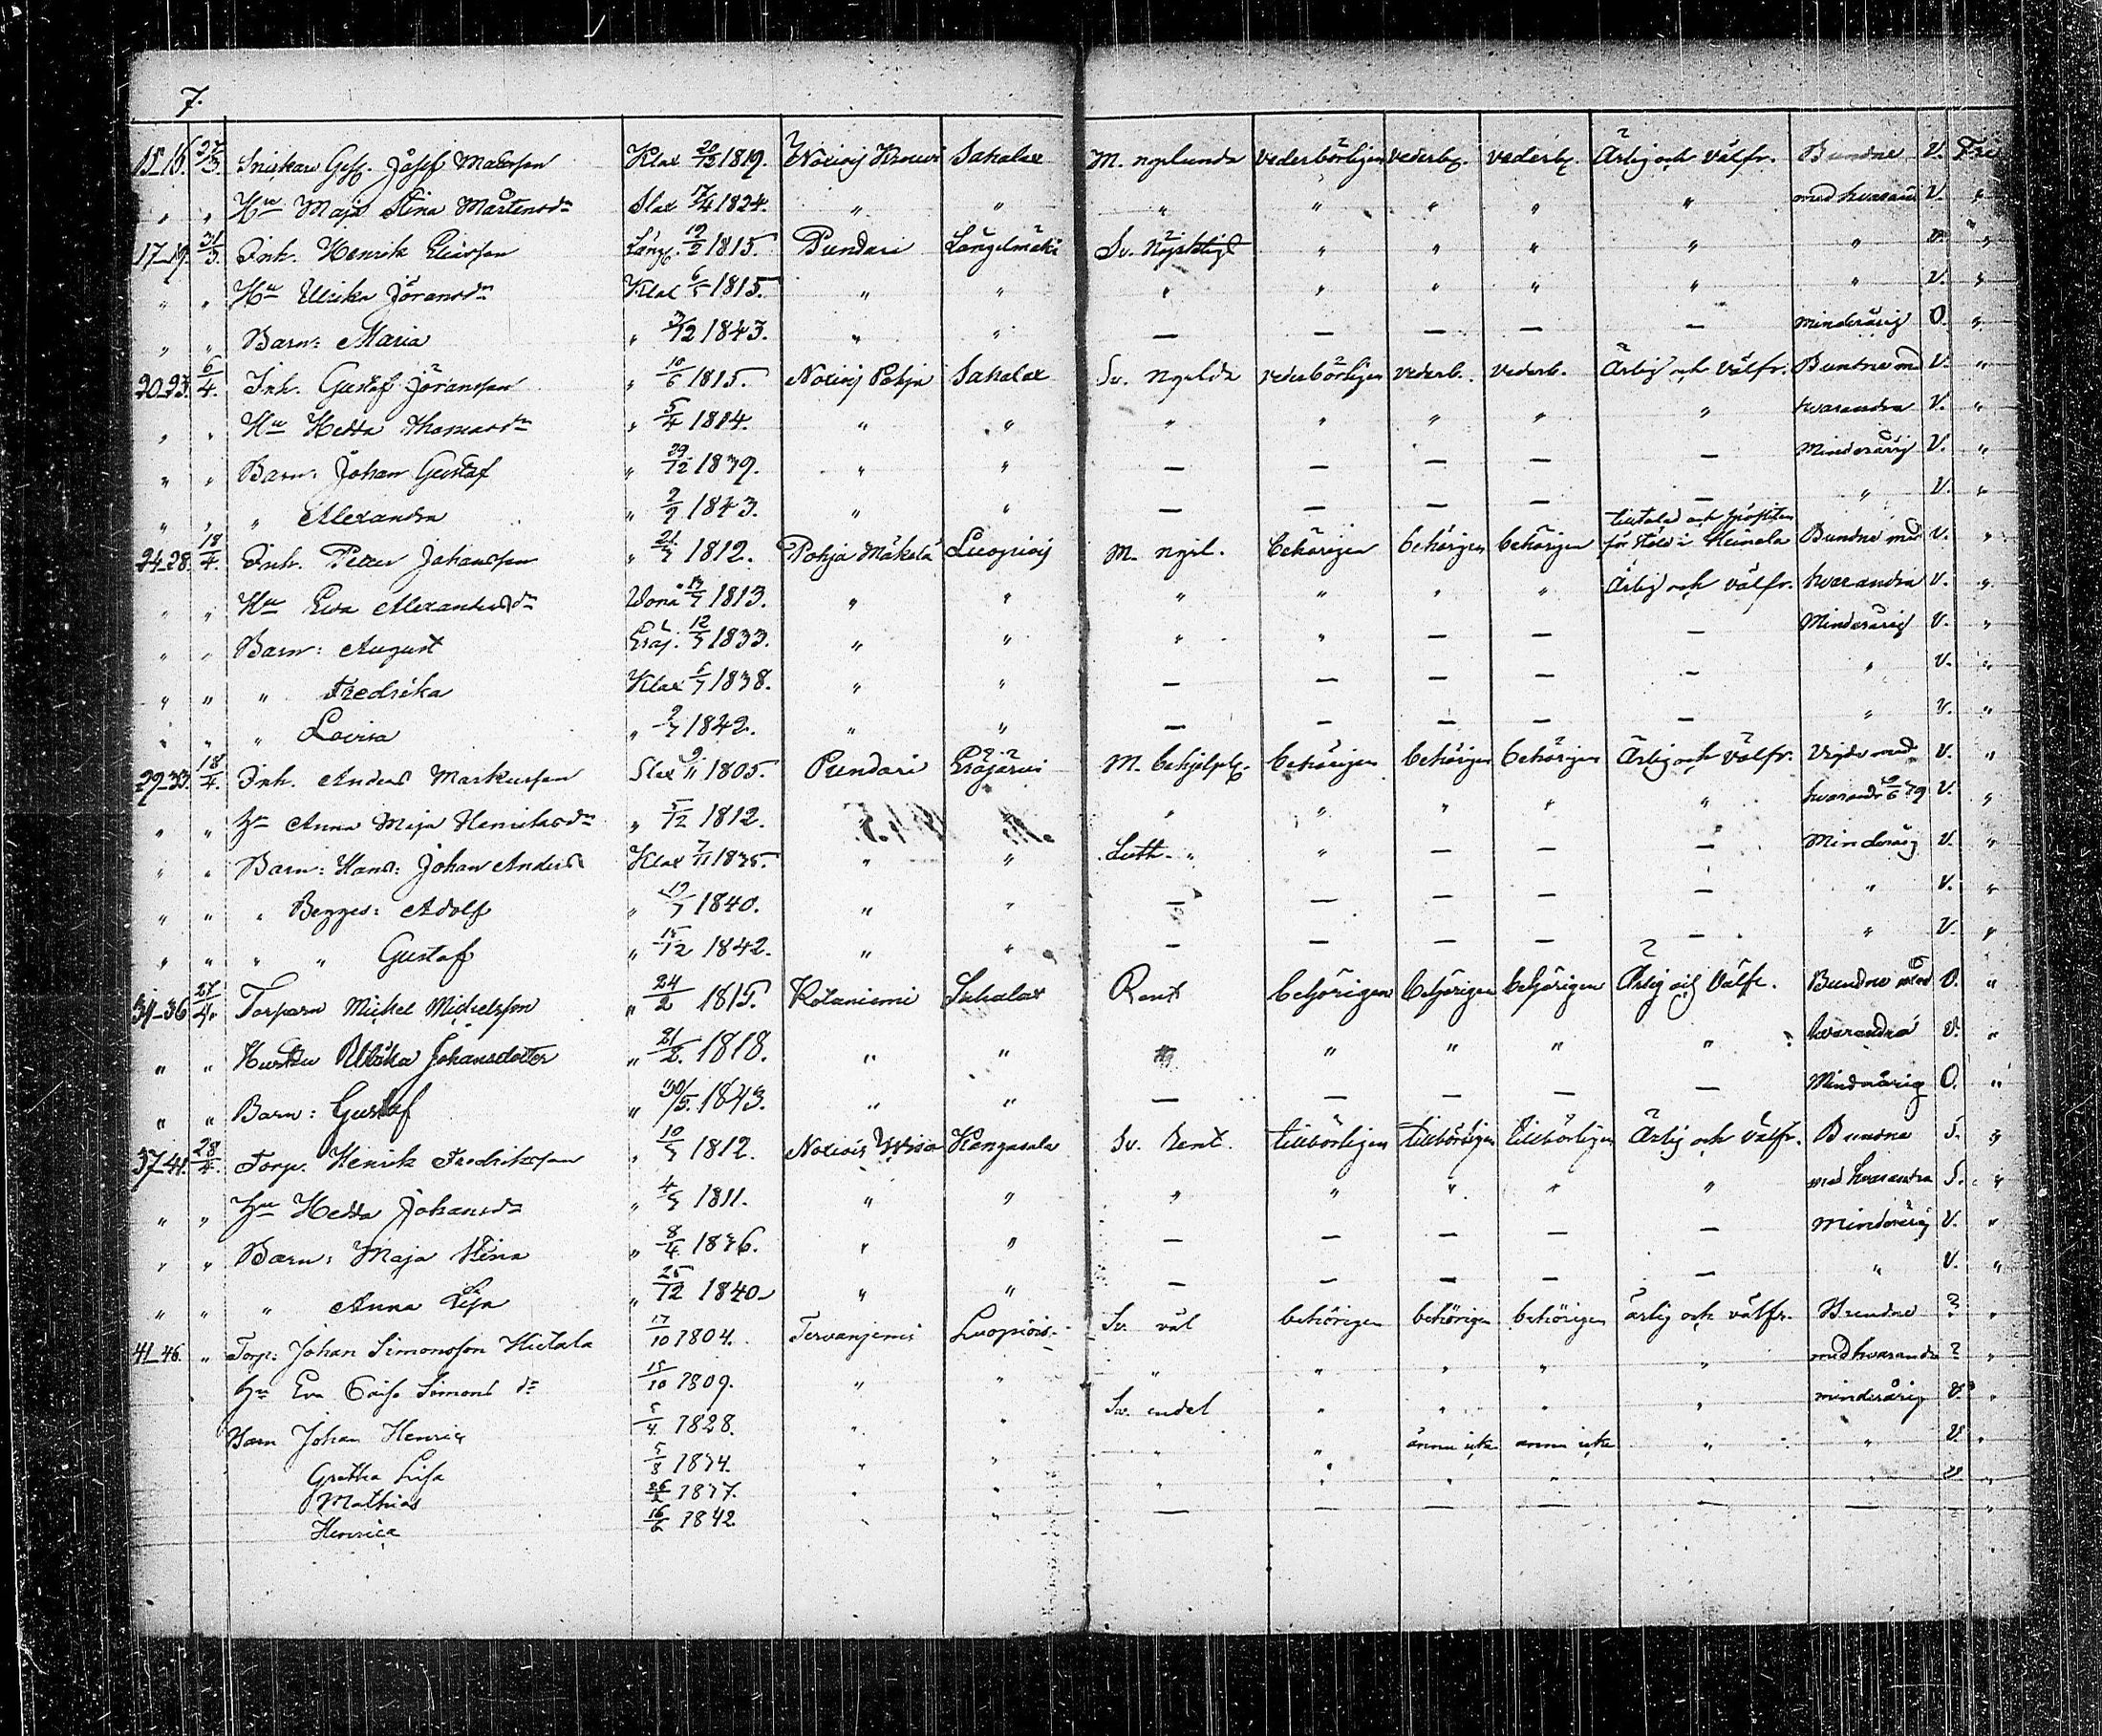 7.
15-16. 27/3. Snickare Ges. Josef Matsson Klax 20/12 1819. Sahalax M. nöjelunda vederbörligen vederb. vederb. Ärlig och välfr. Bundne V. Fri
" " Hu Maja Stina Mårtensdr Slax 17/4 1824. " " " " " " " med hvarand V. "
17-19. 31/3. Inh. Henrik Eliasson Läng. 19/2 1815. Pundari Längelmäki Sv. Nöjaktigt " " " " " V. "
" " Hu Ulrika Jöransdr Klax 6/5 1815. " " " " " " " " V. "
" " Barn: Maria " 3/12 1843. " " — — — — — Minderårig O. "
20-23. 6/4. Inh. Gustaf Jöransson " 10/6 1815. Pohja Sahalax Sv. nöjelda vederbörligen vederb. vederb. Ärlig och välfr. Buntne md V. "
" " Hu Hedda Thomasdr " 5/4 1814. " " " " " " " hvarandra V. "
" " Barn: Johan Gustaf " 29/12 1839. " " — — — — — Minderårig V. "
" " " Alexandra " 2/2 1843. " " — — — — — " V. "
24-28. 18/4. Inh. Petter Johansson " 21/7 1812. Pohja Mäkelä Luopiois M. nöjel. behörigen behörigen behörigen för stöld i Bundne med V. "
" " Hu Eva Alexandersdr 13/7 1813. " " " " " " Ärlig och välfr. hvarandra V. "
" " Barn: August Eräj. 12/3 1833. " " " " — — — Minderårig V. "
" " " Fredrika Klax 6/7 1838. " " — — — — — " V. "
" " " Lovisa " 2/7 1842. " " — — — — — " V. "
29-33. 18/4. Inh. Anders Markusson Slax 9/11 1805. Pundari Eräjärvi M. behjelpl. behörigen behörigen behörigen Ärlig och välfr. Vigde med V. "
" " Hu Anna Maja Henriksdr " 5/12 1812. " " " " " " hvarandr V. "
" " Barn: Hans: Johan Anders Klax 7/11 1835. " " Luth. " " — — — Minderårig V. "
" " " Begges: Adolf " 19/7 1840. " " — — — — — " V. "
" " " " Gustaf " 15/12 1842. " " — — — — — " V. "
34-36 27/4. Torparn Mickel Mickelsson " 24/2 1815. Kotaniemi Sahalax Rent behörigen behörigen behörigen Ärlig och Välfr. Bundne med V. "
" " Hustru Ulrika Johansdotter " 21/2. 1818. " " " " " " " hvarandra V. "
" " Barn: Gustaf " 30/5. 1843. " " — — — — — Minderårig O. "
37-41. 28/4. Torp. Henrik Fredriksson " 10/5 1812. Kangasala Sv. Rent. tillbörligen tillbörligen tillbörligen Ärlig och Välfr. Bundne S. "
" " Hu Hedda Johansdr " 4/5 1811. " " " " " " " med hvarandra S. "
" " Barn: Maja Stina " 8/4 1836. " " — — — — — Minderårig V. "
" " " Anna Lisa " 25/12 1840. " " — — — — — " V. "
41-46. " Torp: Johan Simonsson Hietala 17/10 1804. Tervaniemi Luopiois. Sv. väl behörigen behörigen behörigen ärlig och välfr. Bundne ? "
Hu Eva Caisa Simons dr 15/10 1809. " " " " " " " med hvarandra ? "
Barn Johan Henric 5/4 1828. " " Sv. endel " " " " minderårig V. "
Gretha Lisa 5/8 1834. " " " " ännu icke ännu icke " " V. "
Mathias 26/2 1837. " " " " " " " " V. "
Henrica 16/6 1842. " " — — — — — — "